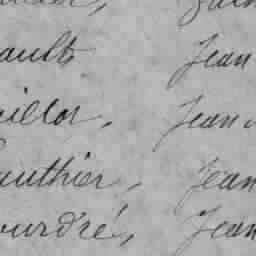 ault Jean
illot, Jean
authier, Jean
ourdré, Jean